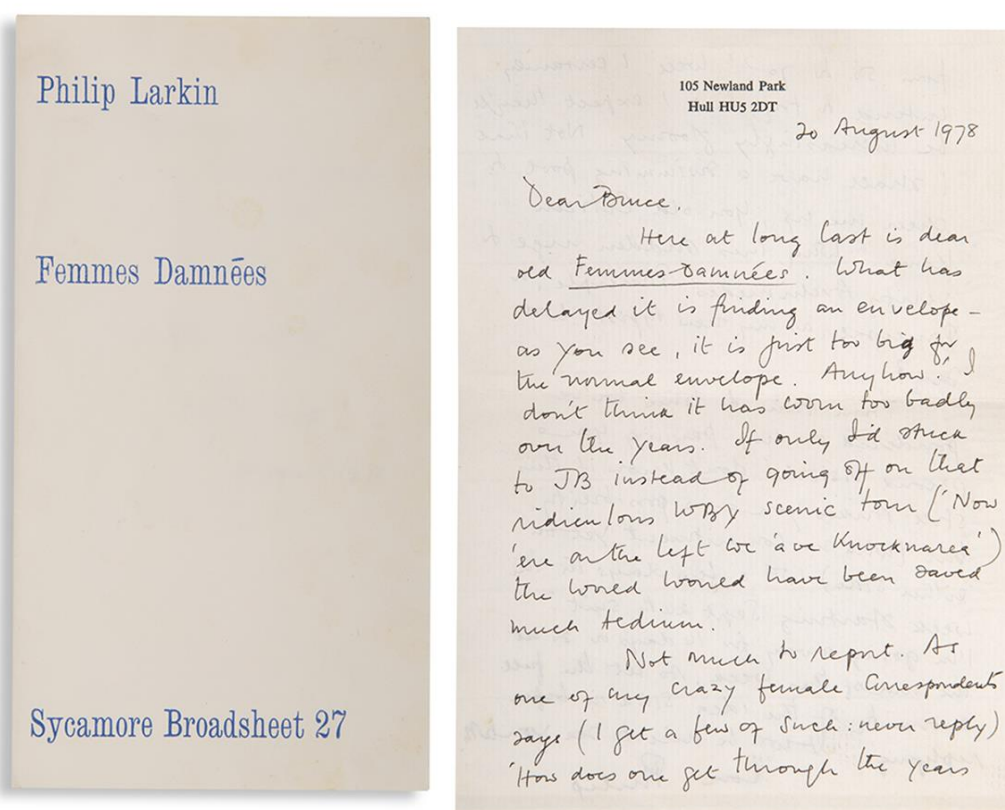 Philip Larkin
Femmes Damnēes
Sycamore Broadsheet 27
105 Newland Park
Hull HU5 2DT
20 August 1978
Dear Bruce.
Here at long last is dear
old Femmes Damnées. What has
delayed it is finding an envelope –
as you see, it is just too big for
the normal envelope. Anyhow! I
don't think it has worn too badly
over the years. If only I'd stuck
to JB instead of going off on that
ridiculous WBY scenic tour ('Now
'ere on the left we 'ave Knocknarea')
the world would have been saved
much tedium.
Not much to report. As
one of my crazy female correspondents
says (I get a few of such: never reply)
'How does one get through the years